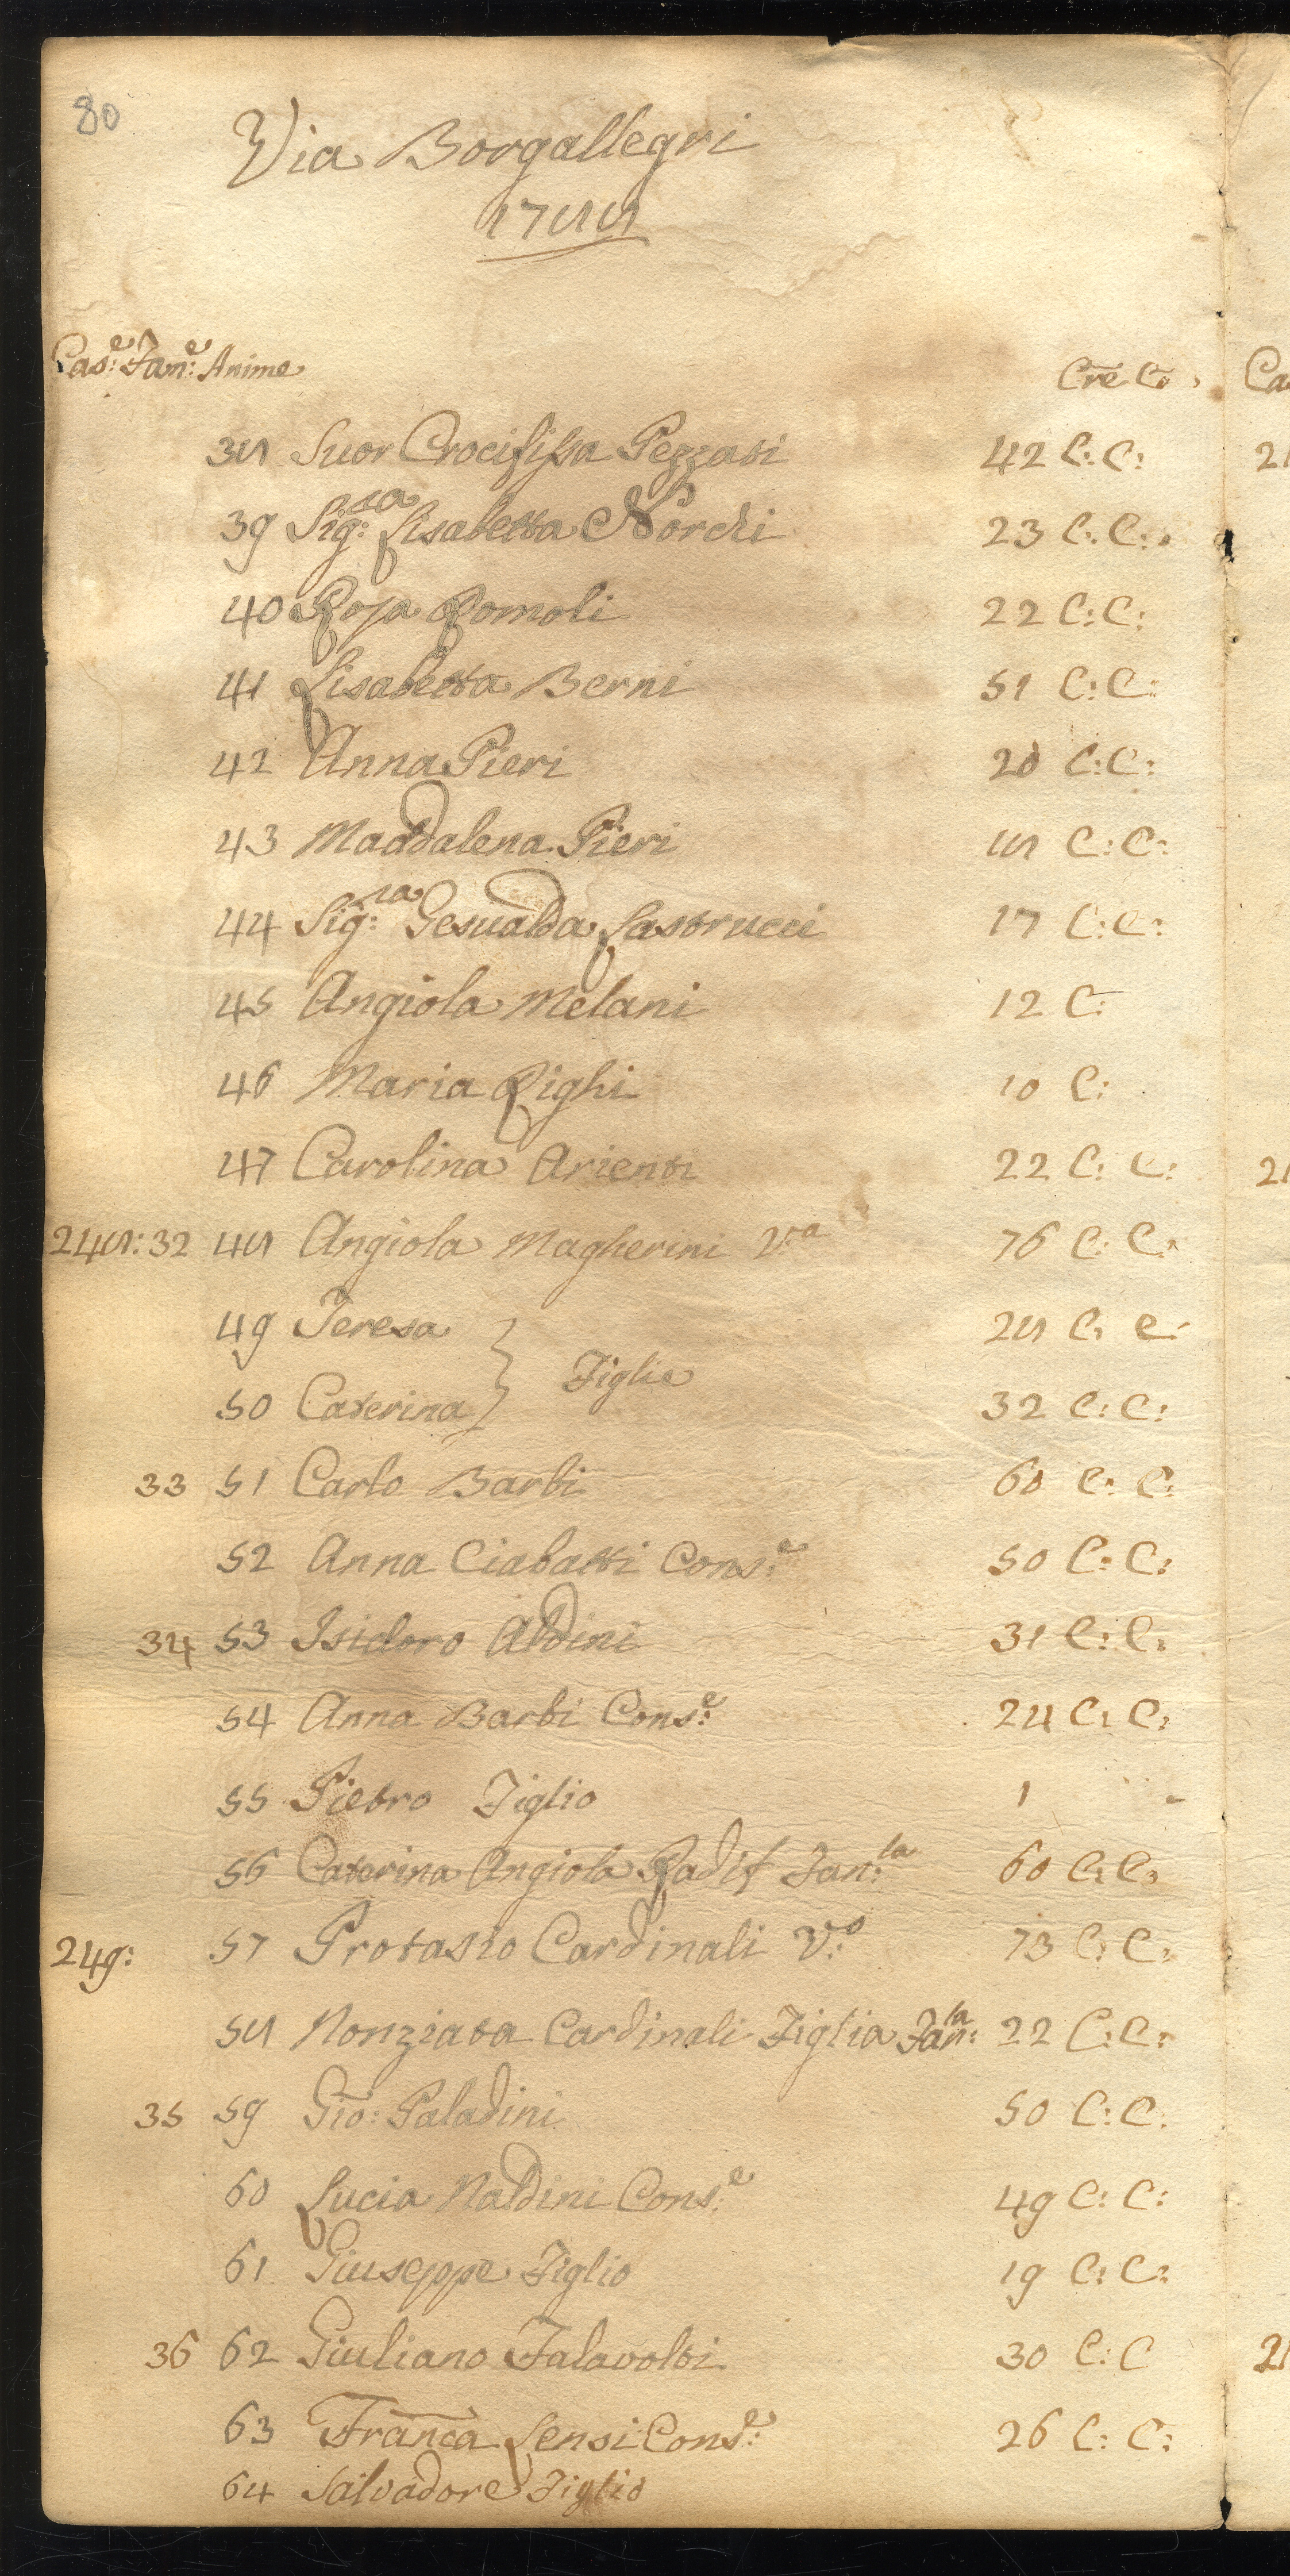 80
Via Borgallegri
1788
Cas:e Fam:e Anime Cre C:
38 Suor Crocifissa Pezzati 42 C: C:
39 Sig:ra Lisabetta Nordi 23 C: C:
40 Rosa Romoli 22 C: C:
41 Lisabetta Berni 51 C: C:
42 Anna Pieri 20 C: C:
43 Maddalena Pieri 18 C: C:
44 Sig:ra Gesualda Lastrucci 17 C: C:
45 Angiola Melani 12 C:
46 Maria Righi 10 C:
47 Carolina Arienti 22 C: C:
248: 32 48 Angiola Magherini Va 76 C: C:
49 Teresa 28 C: C:
} Figlie
50 Caterina 32 C: C:
33 51 Carlo Barbi 60 C: C:
52 Anna Ciabatti Cons:e 50 C: C:
34 53 Isidoro Aldini 31 C: C:
54 Anna Barbi Cons:e 24 C: C:
55 Pietro Figlio 1 -
56 Caterina Angiola Radif Fan:la 60 C: C:
249: 57 Protasio Cardinali V:o 73 C: C:
58 Nonziata Cardinali Figlia Fan:la 22 C: C:
35 59 Gio: Paladini 50 C: C:
60 Lucia Naldini Cons:e 49 C: C:
61 Giuseppe Figlio 19 C: C:
36 62 Giuliano Falavolti 30 C: C
63 Franca Sensi Cons:e 26 C: C:
64 Salvadore Figlio